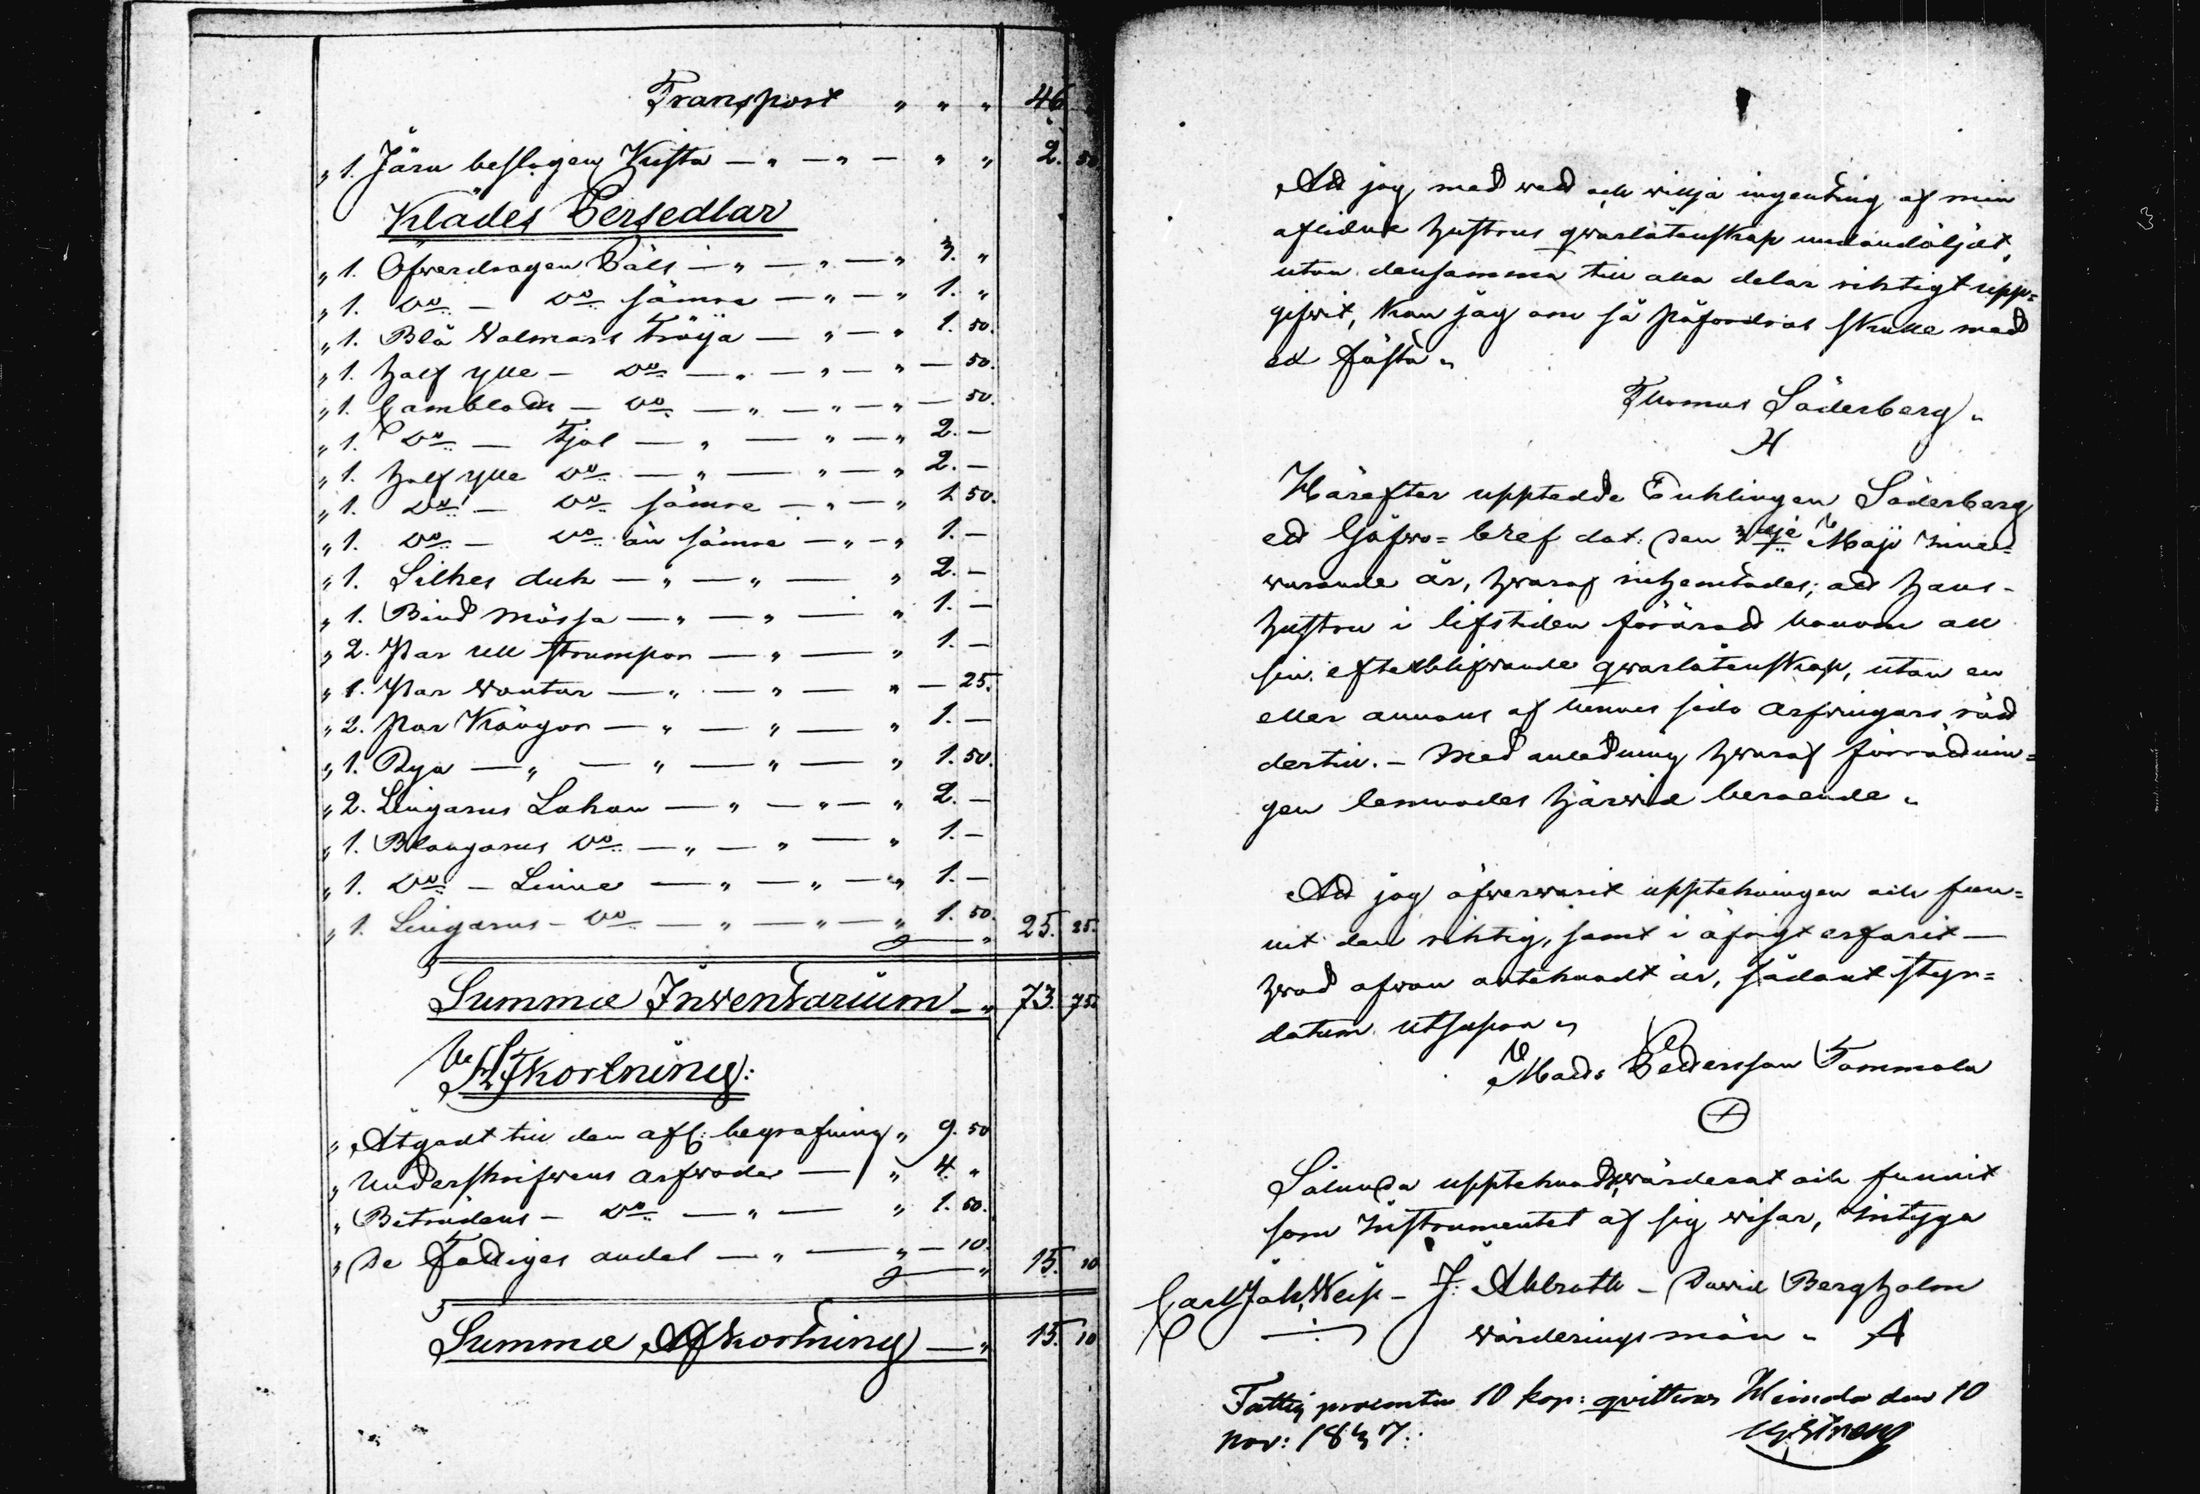 Transport „ „ „ 46.
„ 1. Järn beslagen Kista — „ — „ — „ „ 2. 50.
Klädes Persedlar
„ 1. Öfwerdragen Päls — „ — „ — „ 3. „
„ 1. Do — Do sämre — „ — „ 1. „
„ 1. Blå Walmars tröija — „ — „ 1. 50.
„ 1. half ylle — Do — „ — „ — „ — 50.
„ 1. Camblods — Do — „ — „ — „ — 50.
„ 1. Do — Kjol — „ — „ — „ 2. —
„ 1. half ylle Do — „ — „ — „ 2. —
„ 1. Do — Do sämre — „ — „ 1. 50.
„ 1. Do — Do än sämre — „ — „ 1. —
„ 1. Silkes duk — „ — „ — „ 2. —
„ 1. Bind Mössa — „ — „ — „ 1. —
„ 2. Par ull strumpor — „ — „ 1. —
„ 1. Par Wantar — „ — „ — „ — 25.
„ 2. Par Kängor — „ — „ — „ 1. —
„ 1. Rya — „ — „ — „ — „ 1. 50.
„ 2. Lingarns Lakan — „ — „ — „ 2. —
„ 1. Blaugarns Do — „ — „ — „ 1. —
„ 1. Do — Linne — „ — „ — „ 1. —
„ 1. Lingarns — Do — „ — „ — „ 1. 50. 25. 25.
Summa Inwentarium — „ 73. 75.
Afkortning:
„ Åtgådt till den afl: begrafning „ 9. 50
„ Underskrifwens arfwode — „ 4. „
„ Biträdens — Do — „ — „ 1. 50.
„ De Fattiges andel — „ — „ — 10. 15. 10
Summa Afkortning — „ 15. 10
Att jag med wett och willja ingenting af min
aflidne hustrus qwarlåtenskap undandöljdt,
utan densamma till alla delar riktigt upp=
gifwit, kan jag om så påfordras skulle med
ed fästa „
Thomas Söderberg „
Härefter upptedde Enklingen Söderberg
ett Gåfwo=bref dat: den Maji inne=
warande år, hwaraf inhemtades; att hans
hustru i lifstiden föräradt honom all
sin efterblifwande qwarlåtenskap, utan en
eller annans af hennes sido arfwingars rätt
dertill. — Med anledning hwaraf förrättnin=
gen lemnades härwid beroende „
Att jag öfwerwarit uppteckningen och fun=
nit den riktig, samt i öfrigt erfarit —
hwad ofwan antecknadt är, sådant styr=
datum utsupra „
Mats Pettersson Tommola
Sålunda upptecknadt, wärderat och funnit
som Instrumentet af sig wisar, intyga
Carl Joh. — J: Ahlroth — David Bergholm
Wärderingsmän „
Fattig procenten 10 kop: qvitteras Heinola den 10
nov: 1837: